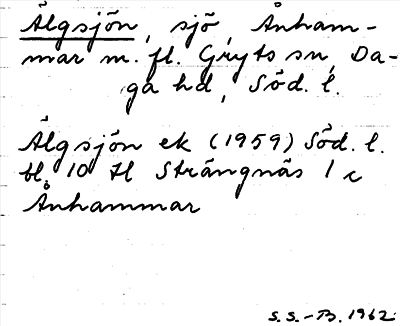 Älgsjön, sjö, Ånham-
mar m. fl. Gryts sn, Da-
ga hd, Söd. l.
Älgsjön ek (1959) Söd. l.
bl. 10 Hl Strängnäs 1 c
Ånhammar
S.S.-B. 1962